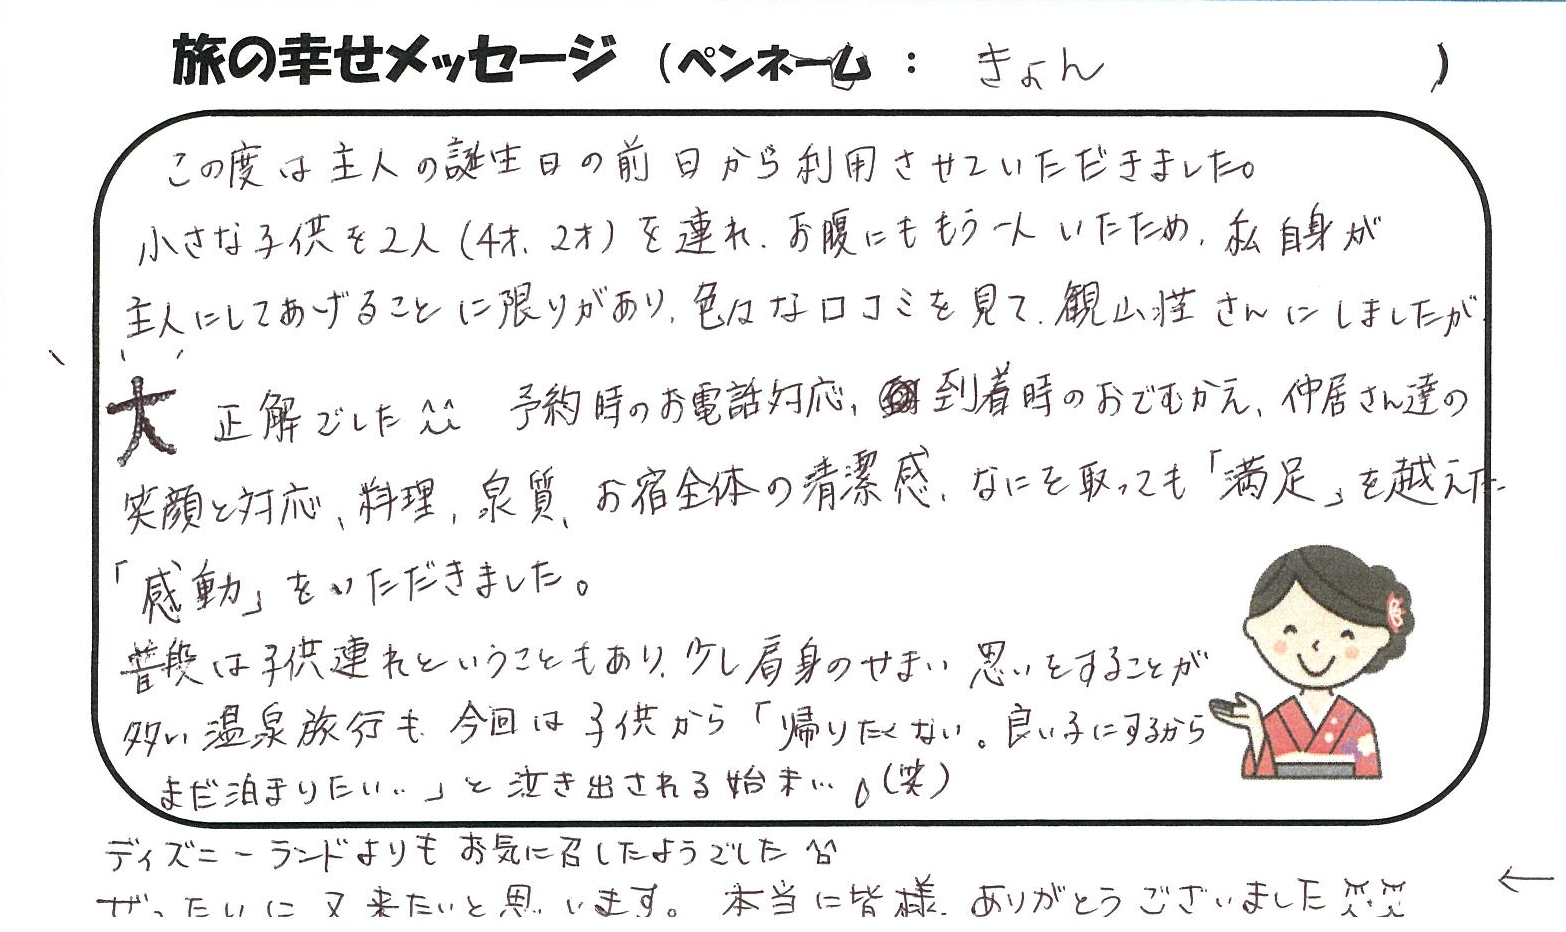 旅の幸せメッセージ（ペンネーム：きょん）
この度は主人の誕生日の前日から利用させていただきました。
小さな子供を2人(4才、2才)を連れ、お腹にももう一人いたため、私自身が
主人にしてあげることに限りがあり、色んな口コミを見て、観山荘さんにしましたが
大正解でした^^ 予約時のお電話対応、到着時のおでむかえ、仲居さん達の
笑顔と対応、料理、泉質、お宿全体の清潔感、なにを取っても「満足」を越えた
「感動」をいただきました。
普段は子供連れということもあり、少し肩身のせまい思いをすることが
多い温泉旅行も、今回は子供から「帰りたくない。良い子にするから
まだ泊まりたい‥」と泣き出される始末…(笑)
ディズニーランドよりもお気に召したようでした^^
ぜったいに又来たいと思います。本当に皆様、ありがとうございました
←